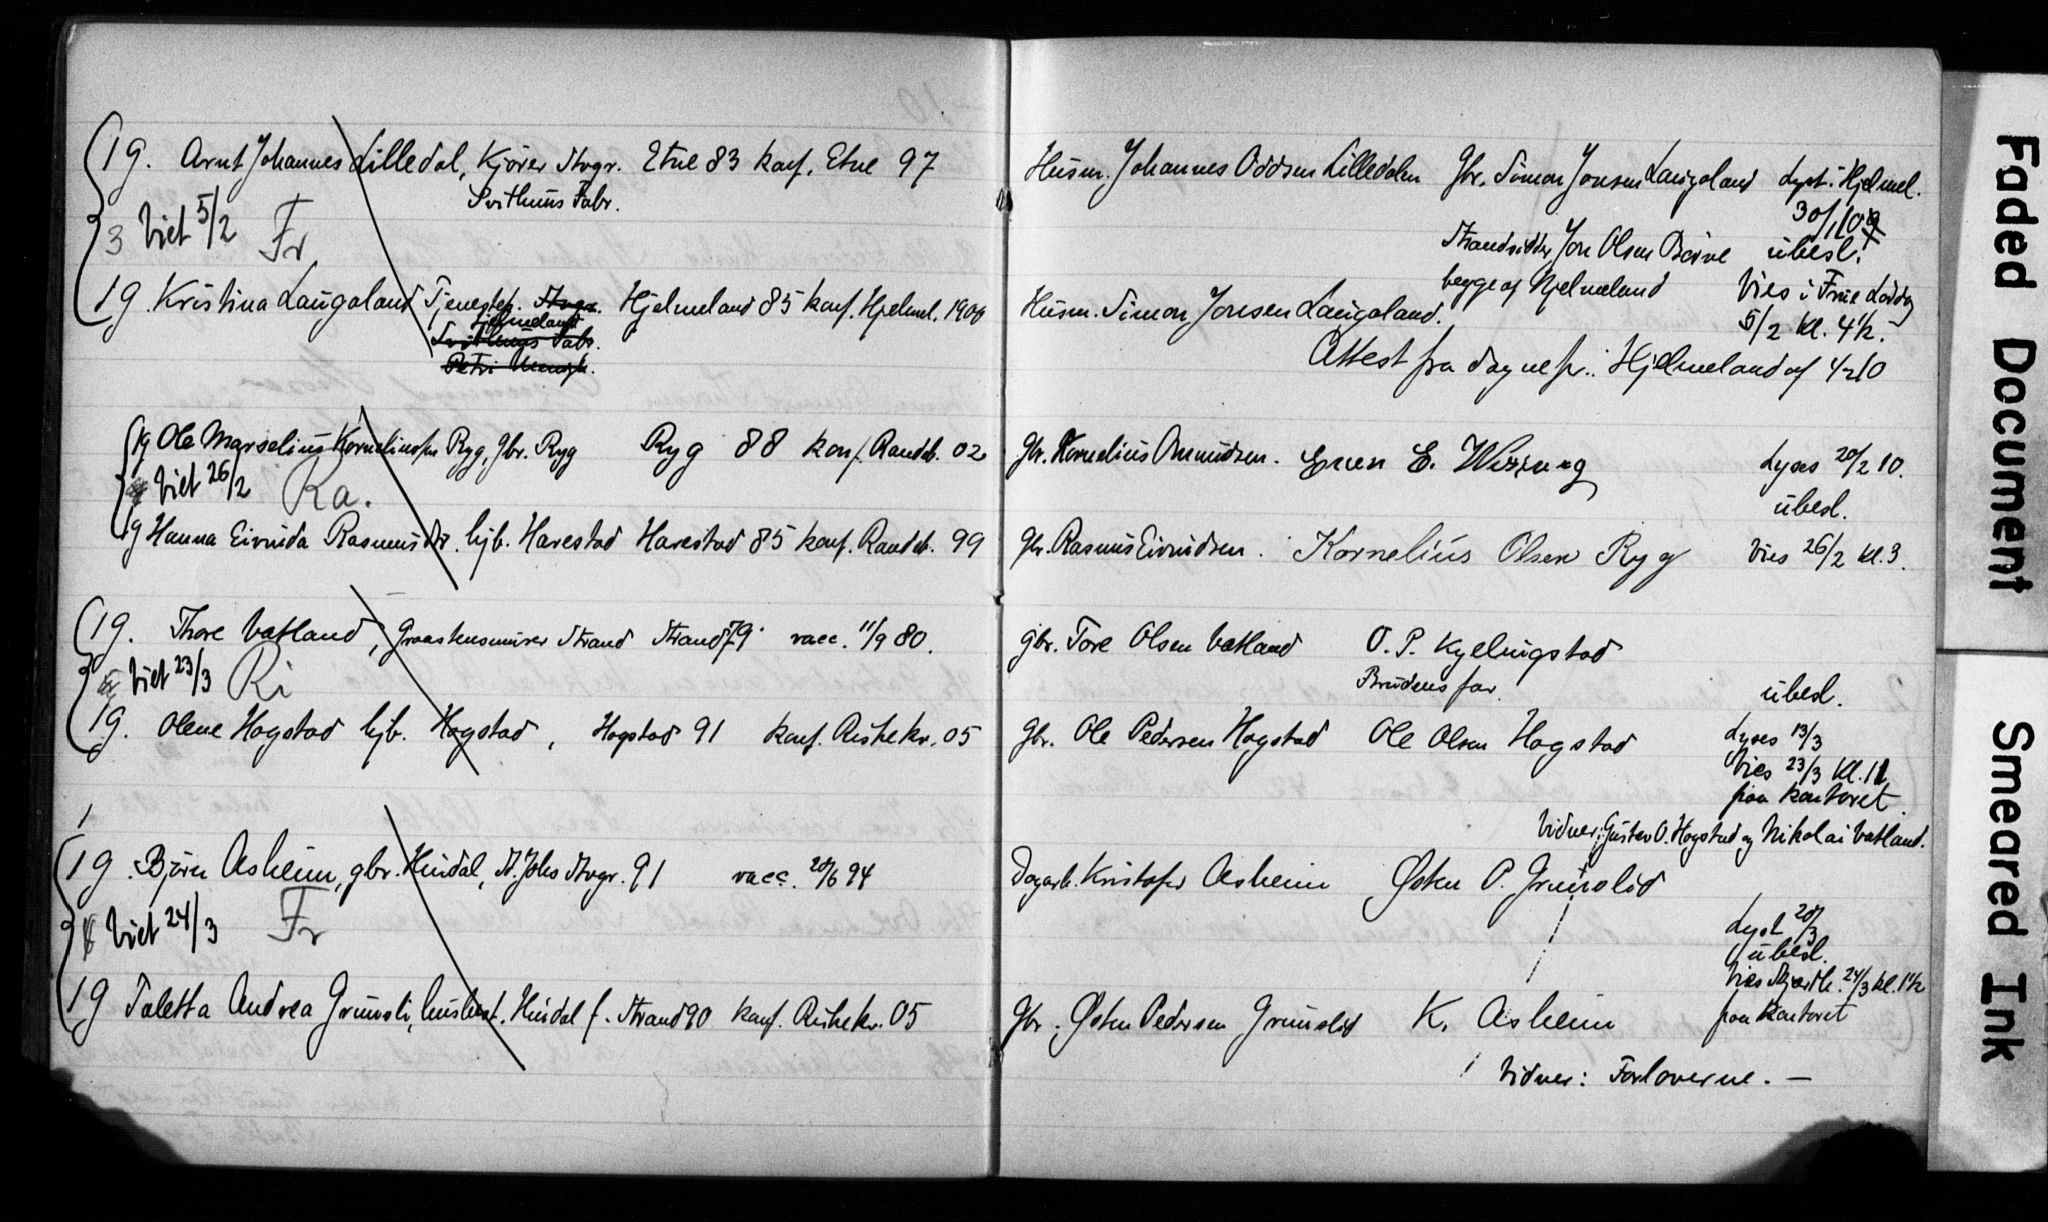 19. Arnt Johannes Lilledal, Kjører Stvgr. Etne 83 konf. Etne 97
Svithuns Fabr.
3 Viet 5/2 Fr
19. Kristina Laugaland Tjenestep. Stvgr. Hjelmeland 85 konf. Hjelmel. 1900
Hjelmeland
Svithuns Fabr.
Petri
19 Ole Marselius Korneliussen Ryg, gbr. Ryg Ryg 88 konf. Randeb. 02
Viet 26/2 Ra.
19 Hanna Eivinda Rasmusdtr. hjb. Harestad Harestad 85 konf. Randeb. 99
19. Thore Vatland, Graastensmurer Strand Strand 79 vacc. 11/9 80.
Viet 23/3 Ri
19. Olene Hogstad hjb. Hogstad, Hogstad 91 konf. Riskekv. 05
1
19. Bjørn Asheim, gbr. Hindal, St. Johs Stvgr. 91 vacc. 20/6 94
Viet 24/3 Fr
19 Taletta Andrea Grunsli, husbest. Hindal f. Strand 90 konf. Riskekv. 05
Husm. Johannes Oddsen Lilledalen Gbr. Simon Jonsen Laugaland Lyst i Hjelmel.
30/1 10
Strandsidder Jon Olsen Børve ubesl.
begge af Hjelmeland Vies i Frue Lørdag
Husm. Simon Jonsen Laugaland. 5/2 kl. 4½.
Attest fra sognepr. i Hjelmeland af 4-2 10
Gbr. Kornelius Asmundsen. E. Lyses 20/2 10.
ubesl.
Gbr. Rasmus Eivindsen. Kornelius Olsen Ryg Vies 26/2 kl. 3.
gbr. Tore Olsen Vatland O. P. Kyelingstad
Brudens far. ubesl.
Gbr. Ole Pedersen Hogstad Ole Olsen Hogstad Lyses 13/3
Vies 23/3 kl. 11
paa kontoret.
Vidner: Gustav O. Hogstad og Nikolai Vatland.
Dagarb. Kristofer Asheim Østen P. Grunslid
Lyst 20/3
ubesl.
Vies 24/3 kl. 1½
Gbr. Østen Pedersen Grunslid K. Asheim paa kontoret
Vidner: Forloverne. —
Faded Document
Smeared Ink